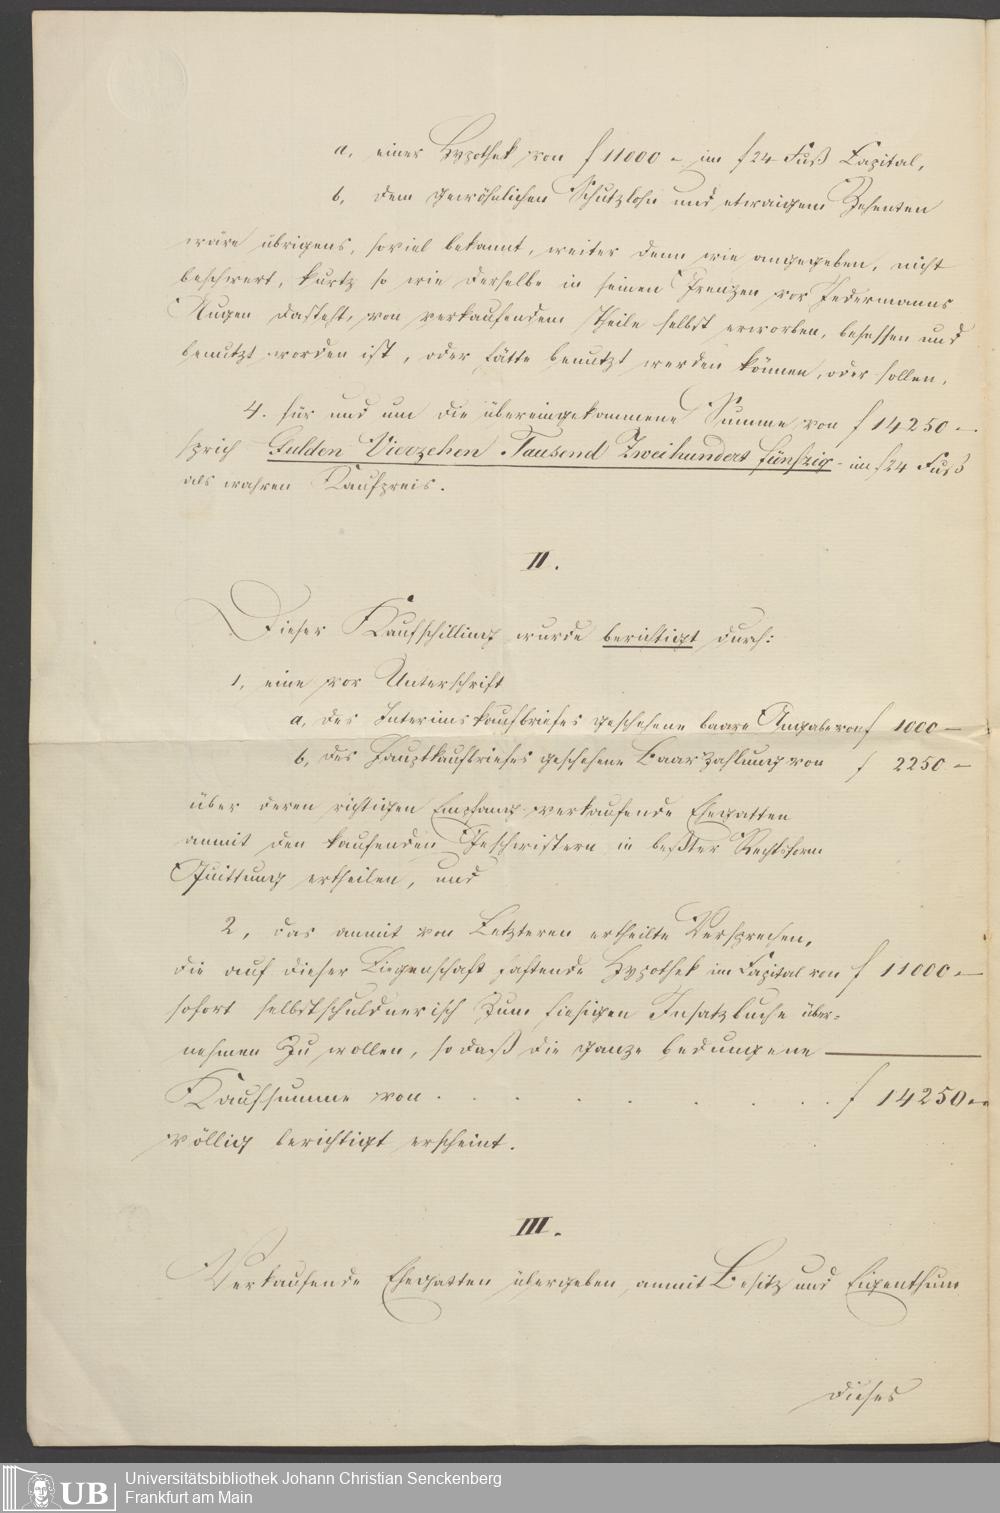 a, einer Hypothek von f 11000 - im f 24 Fuß Capital,
b, dem gewöhnlichen Schutzlohn und etwaigem Zehenten
wäre übrigens, soviel bekannt, weiter denn wie angegeben, nicht
beschwert, kurtz so wie derselbe in seinen Grenzen vor Jedermanns
Augen dasteht, von verkaufendem Theile selbst erworben, besessen und
benutzt worden ist, oder hätte benutzt werden können, oder sollen,
4. für und um die übereingekommene Summe von f 14250 -
sprich Gulden Vierzehen Tausend Zweihundert fünfzig - im f 24 Fuß
als wahren Kaufpreis.
II.
Dieser Kaufschilling wurde berichtigt durch:
1, eine vor Unterschrift
a, des Interimskaufbriefes geschehene baare Angabe von f 1000 -
b, des Hauptkaufbriefes geschehene Baarzahlung von f 2250 -
über deren richtigen Empfang verkaufende Ehegatten
anmit den kaufenden Geschwistern in bester Rechtsform
Quittung ertheilen, und
2, das anmit von Letzteren ertheilte Versprechen,
die auf dieser Liegenschaft haftende Hypothek im Capital von f 11000 -
sofort selbstschuldnerisch zum hiesigen Insatzbuche über-
nehmen zu wollen, so daß die ganze bedungene
Kaufsumme von . . . . . . . f 14250 -
völlig berichtigt erscheint.
III.
Verkaufende Ehegatten übergeben anmit Besitz und Eigenthum
dieses
UB
Universitätsbibliothek Johann Christian Senckenberg
Frankfurt am Main